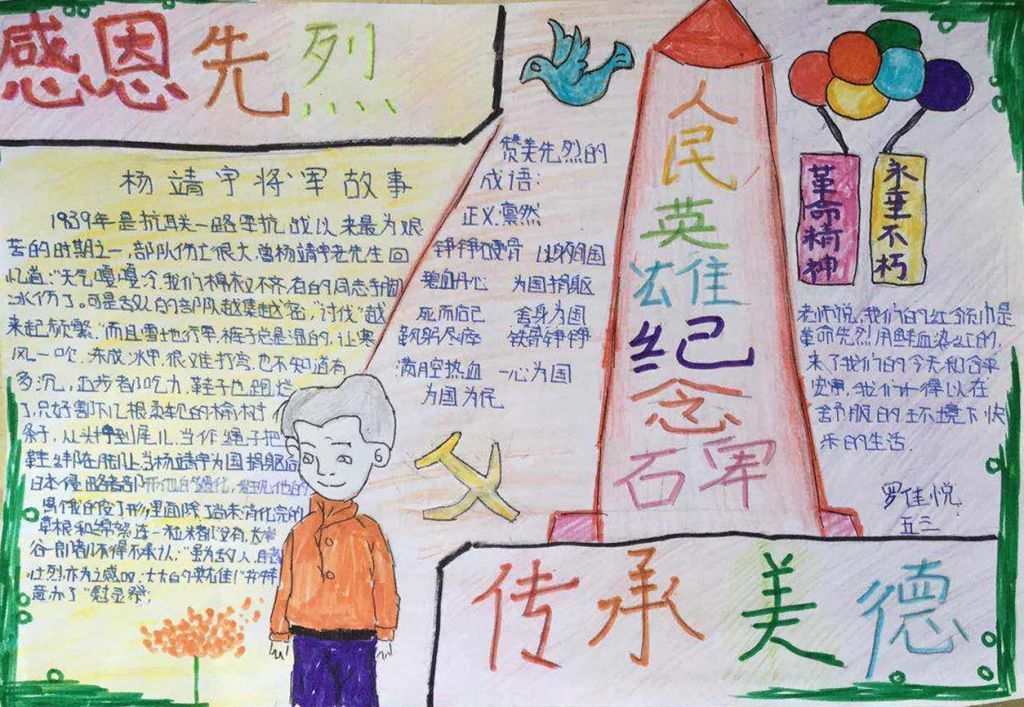 感恩先烈
杨靖宇将军故事
1939年是抗联一路军抗战以来最为艰
苦的时期之一,部队伤亡很大,曾杨靖宇老先生回
忆道:"天气嘎嘎冷,我们棉衣又不齐,有的同志手脚
冰伤了。可是敌人的部队越集越密,"讨伐"越
来起频繁,"而且雪地行军,裤子总是湿的,让寒
风一吹,冻成冰甲,很难打弯,也不知道有
多沉,迈步都吃力,鞋子也跑烂
了,只好割下几根柔软的榆树
条子,从头拧到尾儿,当作绳子把
鞋绑在脚上,当杨靖宇为国捐躯后
日本侵略者
草根和棉絮连一粒粮都没有,
谷一郎都不得不承认:"虽为敌人,
壮烈亦为之感叹:大大的英雄!"并特
意办了"慰灵祭。
赞美先烈的
成语:
正义凛然
铮铮硬骨 以身殉国
碧血丹心 为国捐躯
死而后已 舍身为国
鞠躬尽瘁 铁骨铮铮
满月空热血 一心为国
为国为民
人民英雄纪念石军
革命精神
永垂不朽
老师说,我们的红领巾是
革命先烈用鲜血染红的,
来了我们的今天和合平
安康,我们才得以在
舒服的环境下快
乐的生活.
罗佳悦
五三
传承美德